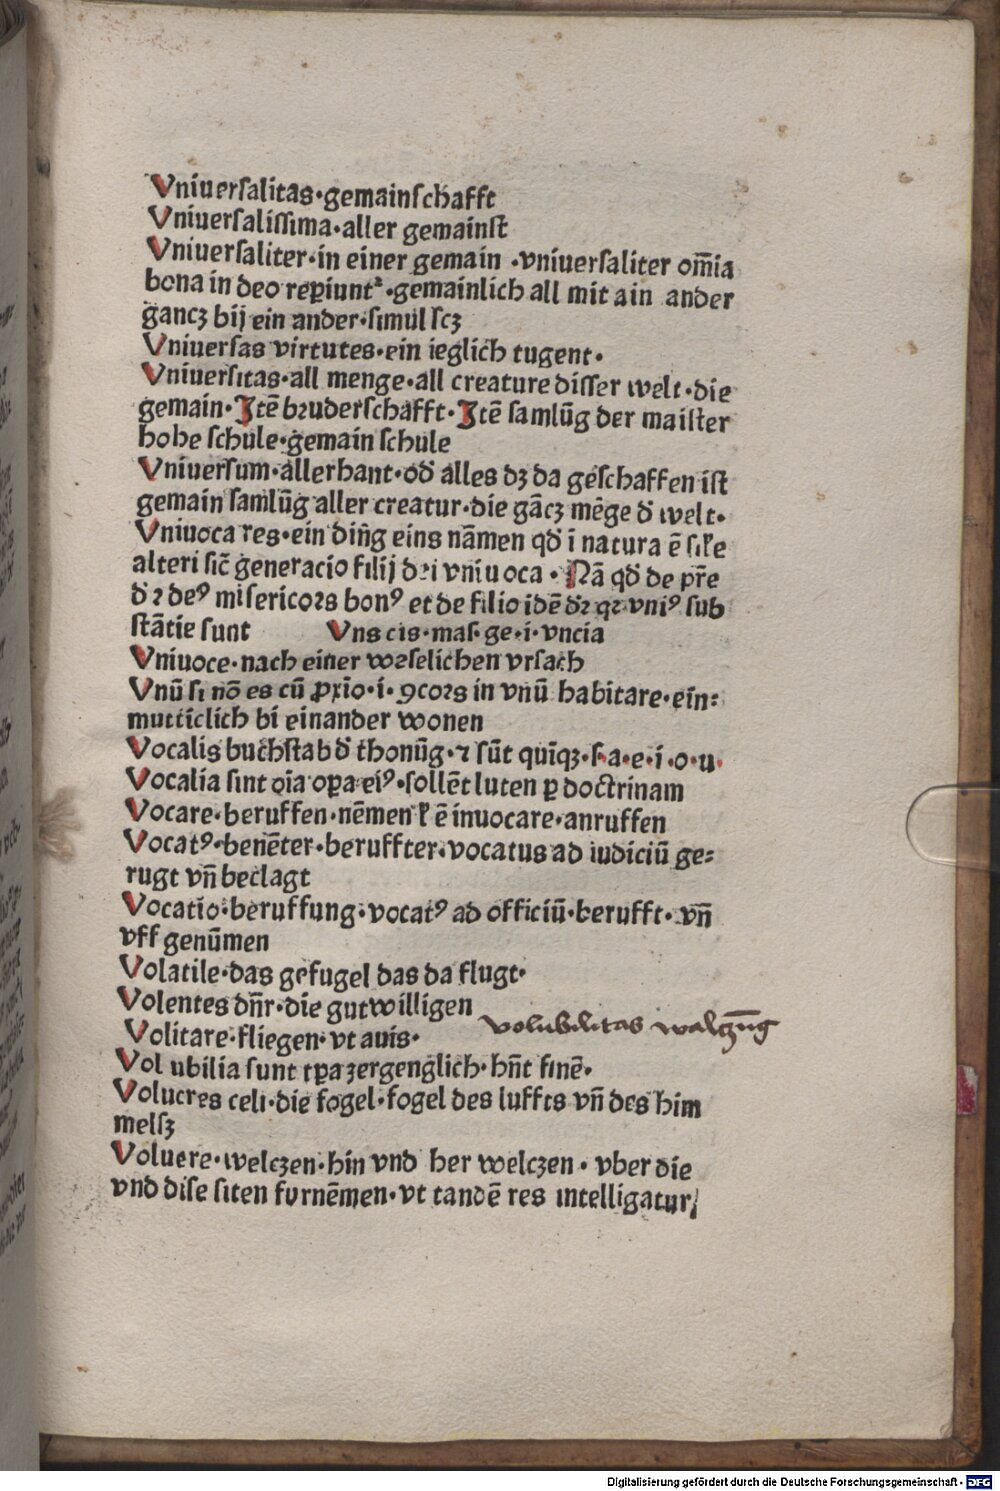 Vniuerſalitas·gemainſchafft
Vniuerſaliſſima·aller gemainſt
Vniuerſaliter·in einer gemain ·vniuerſaliter om̄ia
bona in deo reꝑiunt᷑·gemainlich all mit ain ander
gancʒ bij ein ander·ſimul ſcʒ
Vniuerſas virtutes·ein ieglich tugent·
Vniuerſitas·all menge·all creature diſſer welt·die
gemain·Itē bꝛuderſchafft·Itē ſamlūg der maiſter
hohe ſchule·gemain ſchule
Vniuerſum·allerhant·od̄ alles dʒ da geſchaffen iſt
gemain ſamlūg aller creatur·die gācʒ mēge d̄ welt·
Vniuoca res·ein ding eins nāmen qd̄ ī natura ē ſil̄e
alteri ſic̄ generacio filij dꝛi vniuoca·Nā qd̄ de pr̄e
d̄ꝛ deꝰ miſericoꝛs bonꝰ et de filio idē d̄ꝛ qꝛ vniꝰ ſub
ſtātie ſunt Vns cis·maſ·ge·i·vncia
Vniuoce·nach einer weſelichen vrſach
Vnū ſi nō es cū ꝓxīo·i·ꝯcoꝛs in vnū habitare·ein⸗
mutticlich bi einander wonen
Vocalis buchſtab d̄ thonūg·ꝛ ſūt quīqʒ·ſ·a·e·i·o·u·
Vocalia ſint oīa oꝑa eiꝰ·ſollēt luten ꝑ doctrinam
Vocare·beruffen·nēmen ł ē inuocare·anruffen
Vocatꝰ·benēter·beruffter·vocatus ad iudiciū ge⸗
rugt vn̄ beclagt
Vocatio·beruffung·vocatꝰ ad officiū·berufft·vn̄
vff genūmen
Volatile·das gefugel das da flugt·
Volentes dn̄r·die gutwilligen
volubilitas walczūg
Volitare·fliegen·vt auis·
Vol ubilia ſunt tꝑa zergenglich·hn̄t finē·
Volucres celi·die fogel·fogel des luffts vn̄ des him
melſʒ
Voluere·welczen·hin vnd her welczen·vber die
vnd diſe ſiten furnēmen·vt tandē res intelligatur/
Digitalisierung gefördert durch die Deutsche Forschungsgemeinschaft - DFG